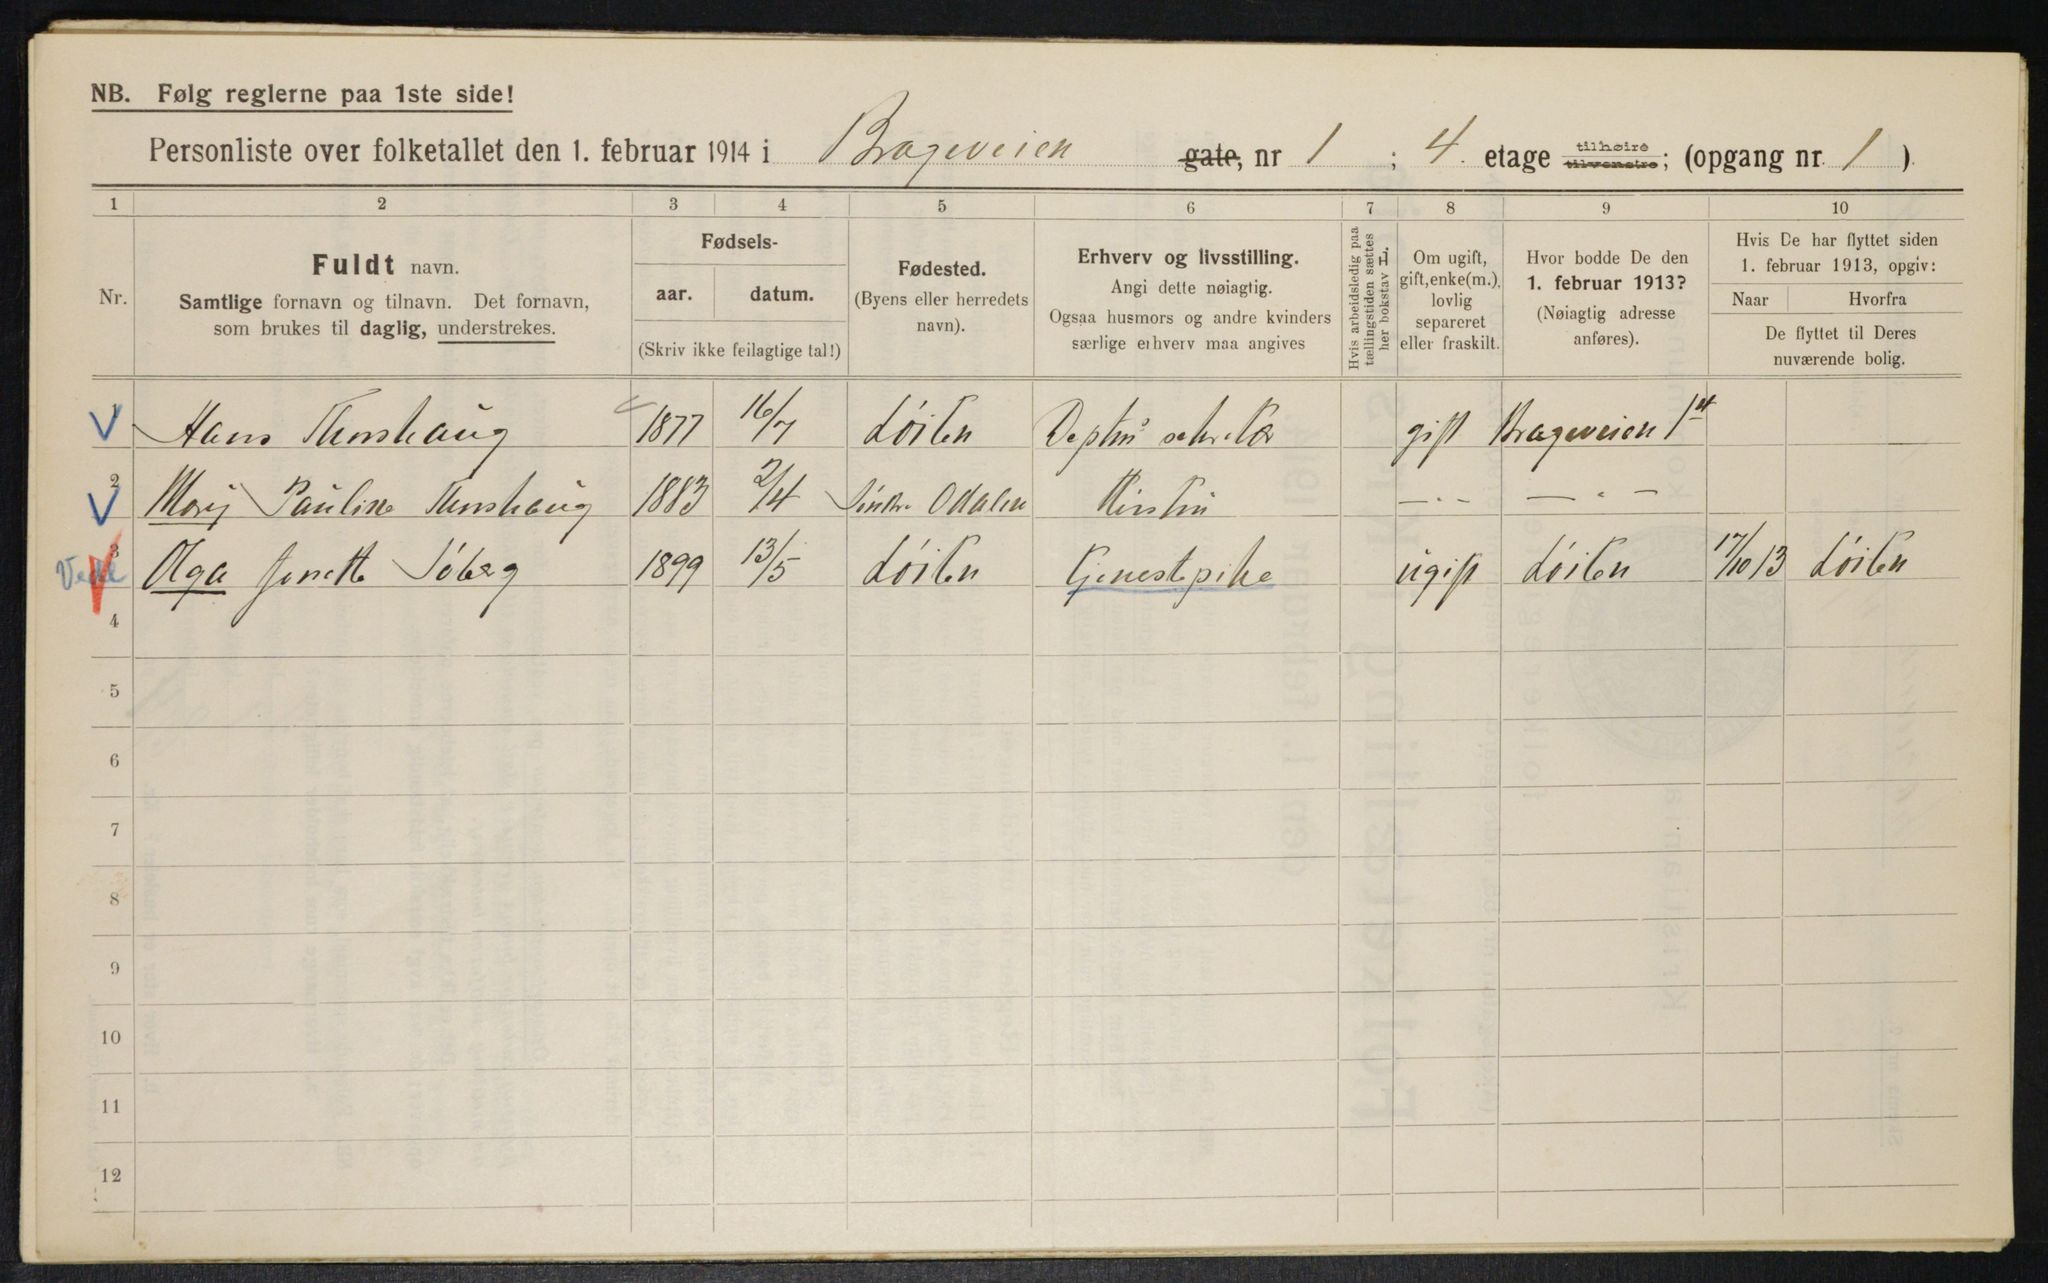 NB. Følg reglerne paa 1ste side!
Personliste over folketallet den 1. februar 1914 i Brageveien gate, nr 1 ; 4. etage tilhøire tilvenstre; (opgang nr. 1 ).
1 2 3 4 5 6 7 8 9 10
Nr.
Fuldt navn.
Samtlige fornavn og tilnavn. Det fornavn,
som brukes til daglig, understrekes.
Fødsels-
aar. datum.
(Skriv ikke feilagtige tal!)
Fødested.
(Byens eller herredets
navn).
Erhverv og livsstilling.
Angi dette nøiagtig.
Ogsaa husmors og andre kvinders
særlige erhverv maa angives
Hvis arbeidsledig paa
tællingstiden sættes
her bokstav L.
Om ugift,
gift, enke(m.),
lovlig
separeret
eller fraskilt.
Hvor bodde De den
1. februar 1913?
(Nøiagtig adresse
anføres).
Hvis De har flyttet siden
1. februar 1913, opgiv:
Naar Hvorfra
De flyttet til Deres
nuværende bolig.
1 Hans Tunshaug 1877 16/7 Løiten gift Brageveien 1 4
2 Pauline Tunshaug 1883 2/4 Søndre Odalen Hustru — . — — . —
3 Olga Jonette Søberg 1899 13/5 Løiten tjenestepike ugift Løiten 17/10 13 Løiten
4
5
6
7
8
9
10
11
12